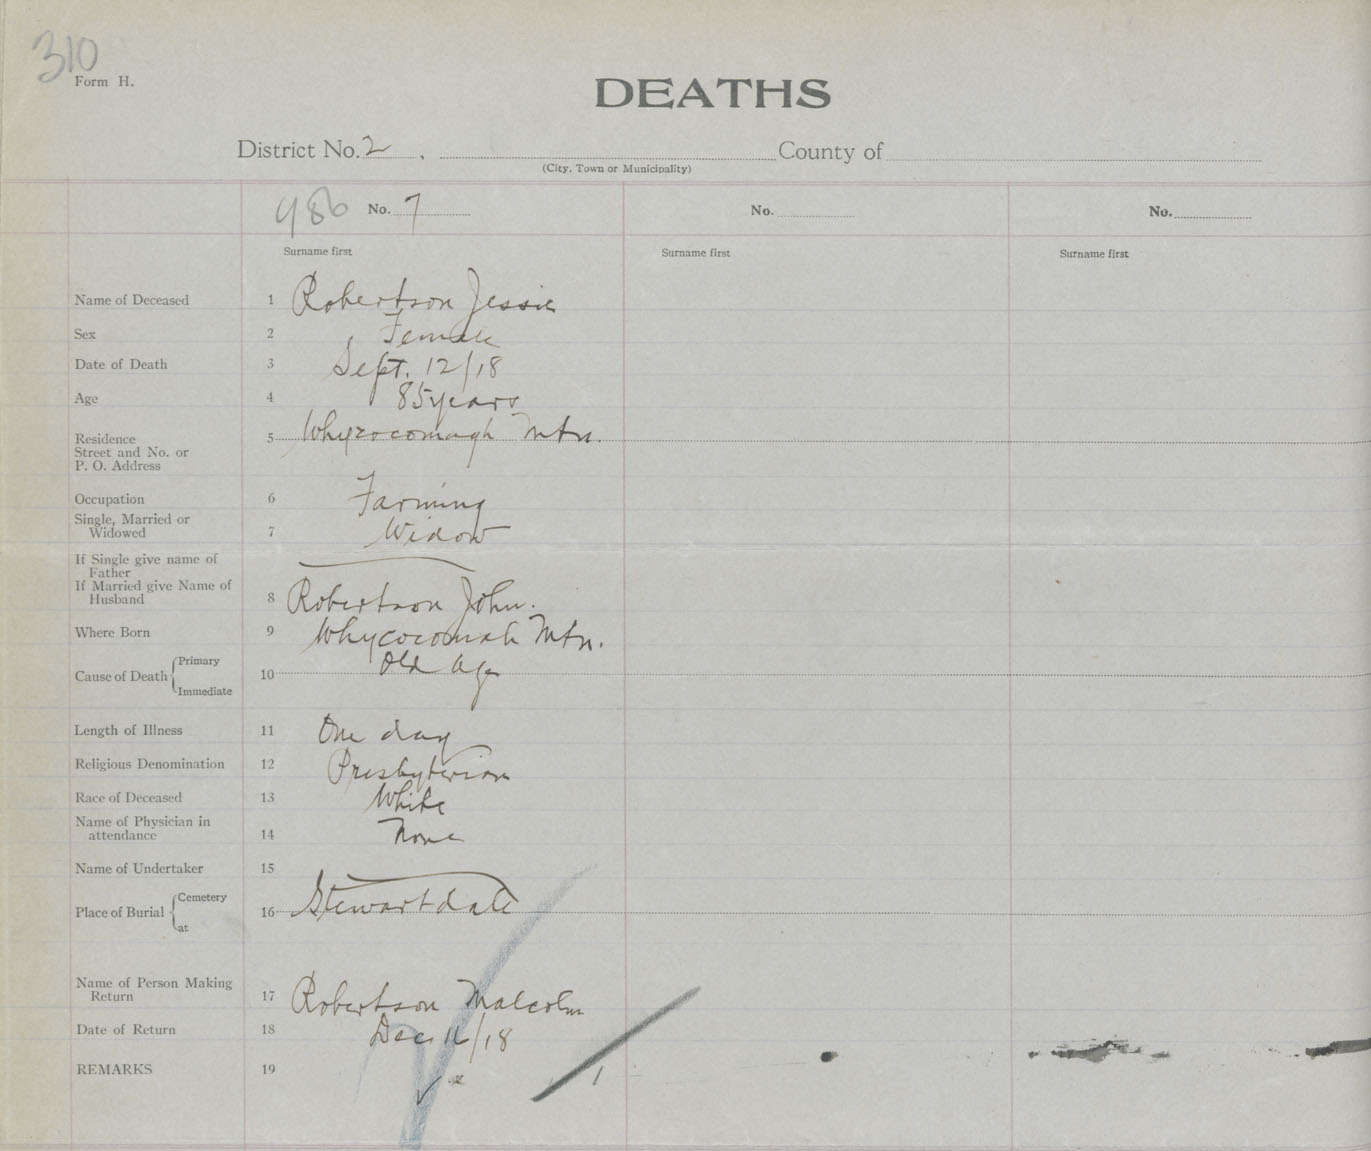 310
Form H.
DEATHS
District No. 2, County of
(City, Town or Municipality)
986 No. 7 No. No.
Surname first Surname first Surname first
Name of Deceased 1 Robertson Jessie
Sex 2 Female
Date of Death 3 Sept. 12/18
Age 4 85 years
Residence 5 Whycocomagh Mtn.
Street and No. or
P. O. Address
Occupation 6 Farming
Single, Married or
Widowed 7 Widow
If Single give name of
Father
If Married give Name of
Husband 8 Robertson John.
Where Born 9 Whycocomah Mtn.
Cause of Death Primary 10 Old Age
Immediate
Length of Illness 11 One day
Religious Denomination 12 Presbyterian
Race of Deceased 13 White
Name of Physician in
attendance 14 None
Name of Undertaker 15
Place of Burial Cemetery 16 Stewartdale
at
Name of Person Making
Return 17 Robertson Malcolm
Date of Return 18 Dec. 11/18
REMARKS 19